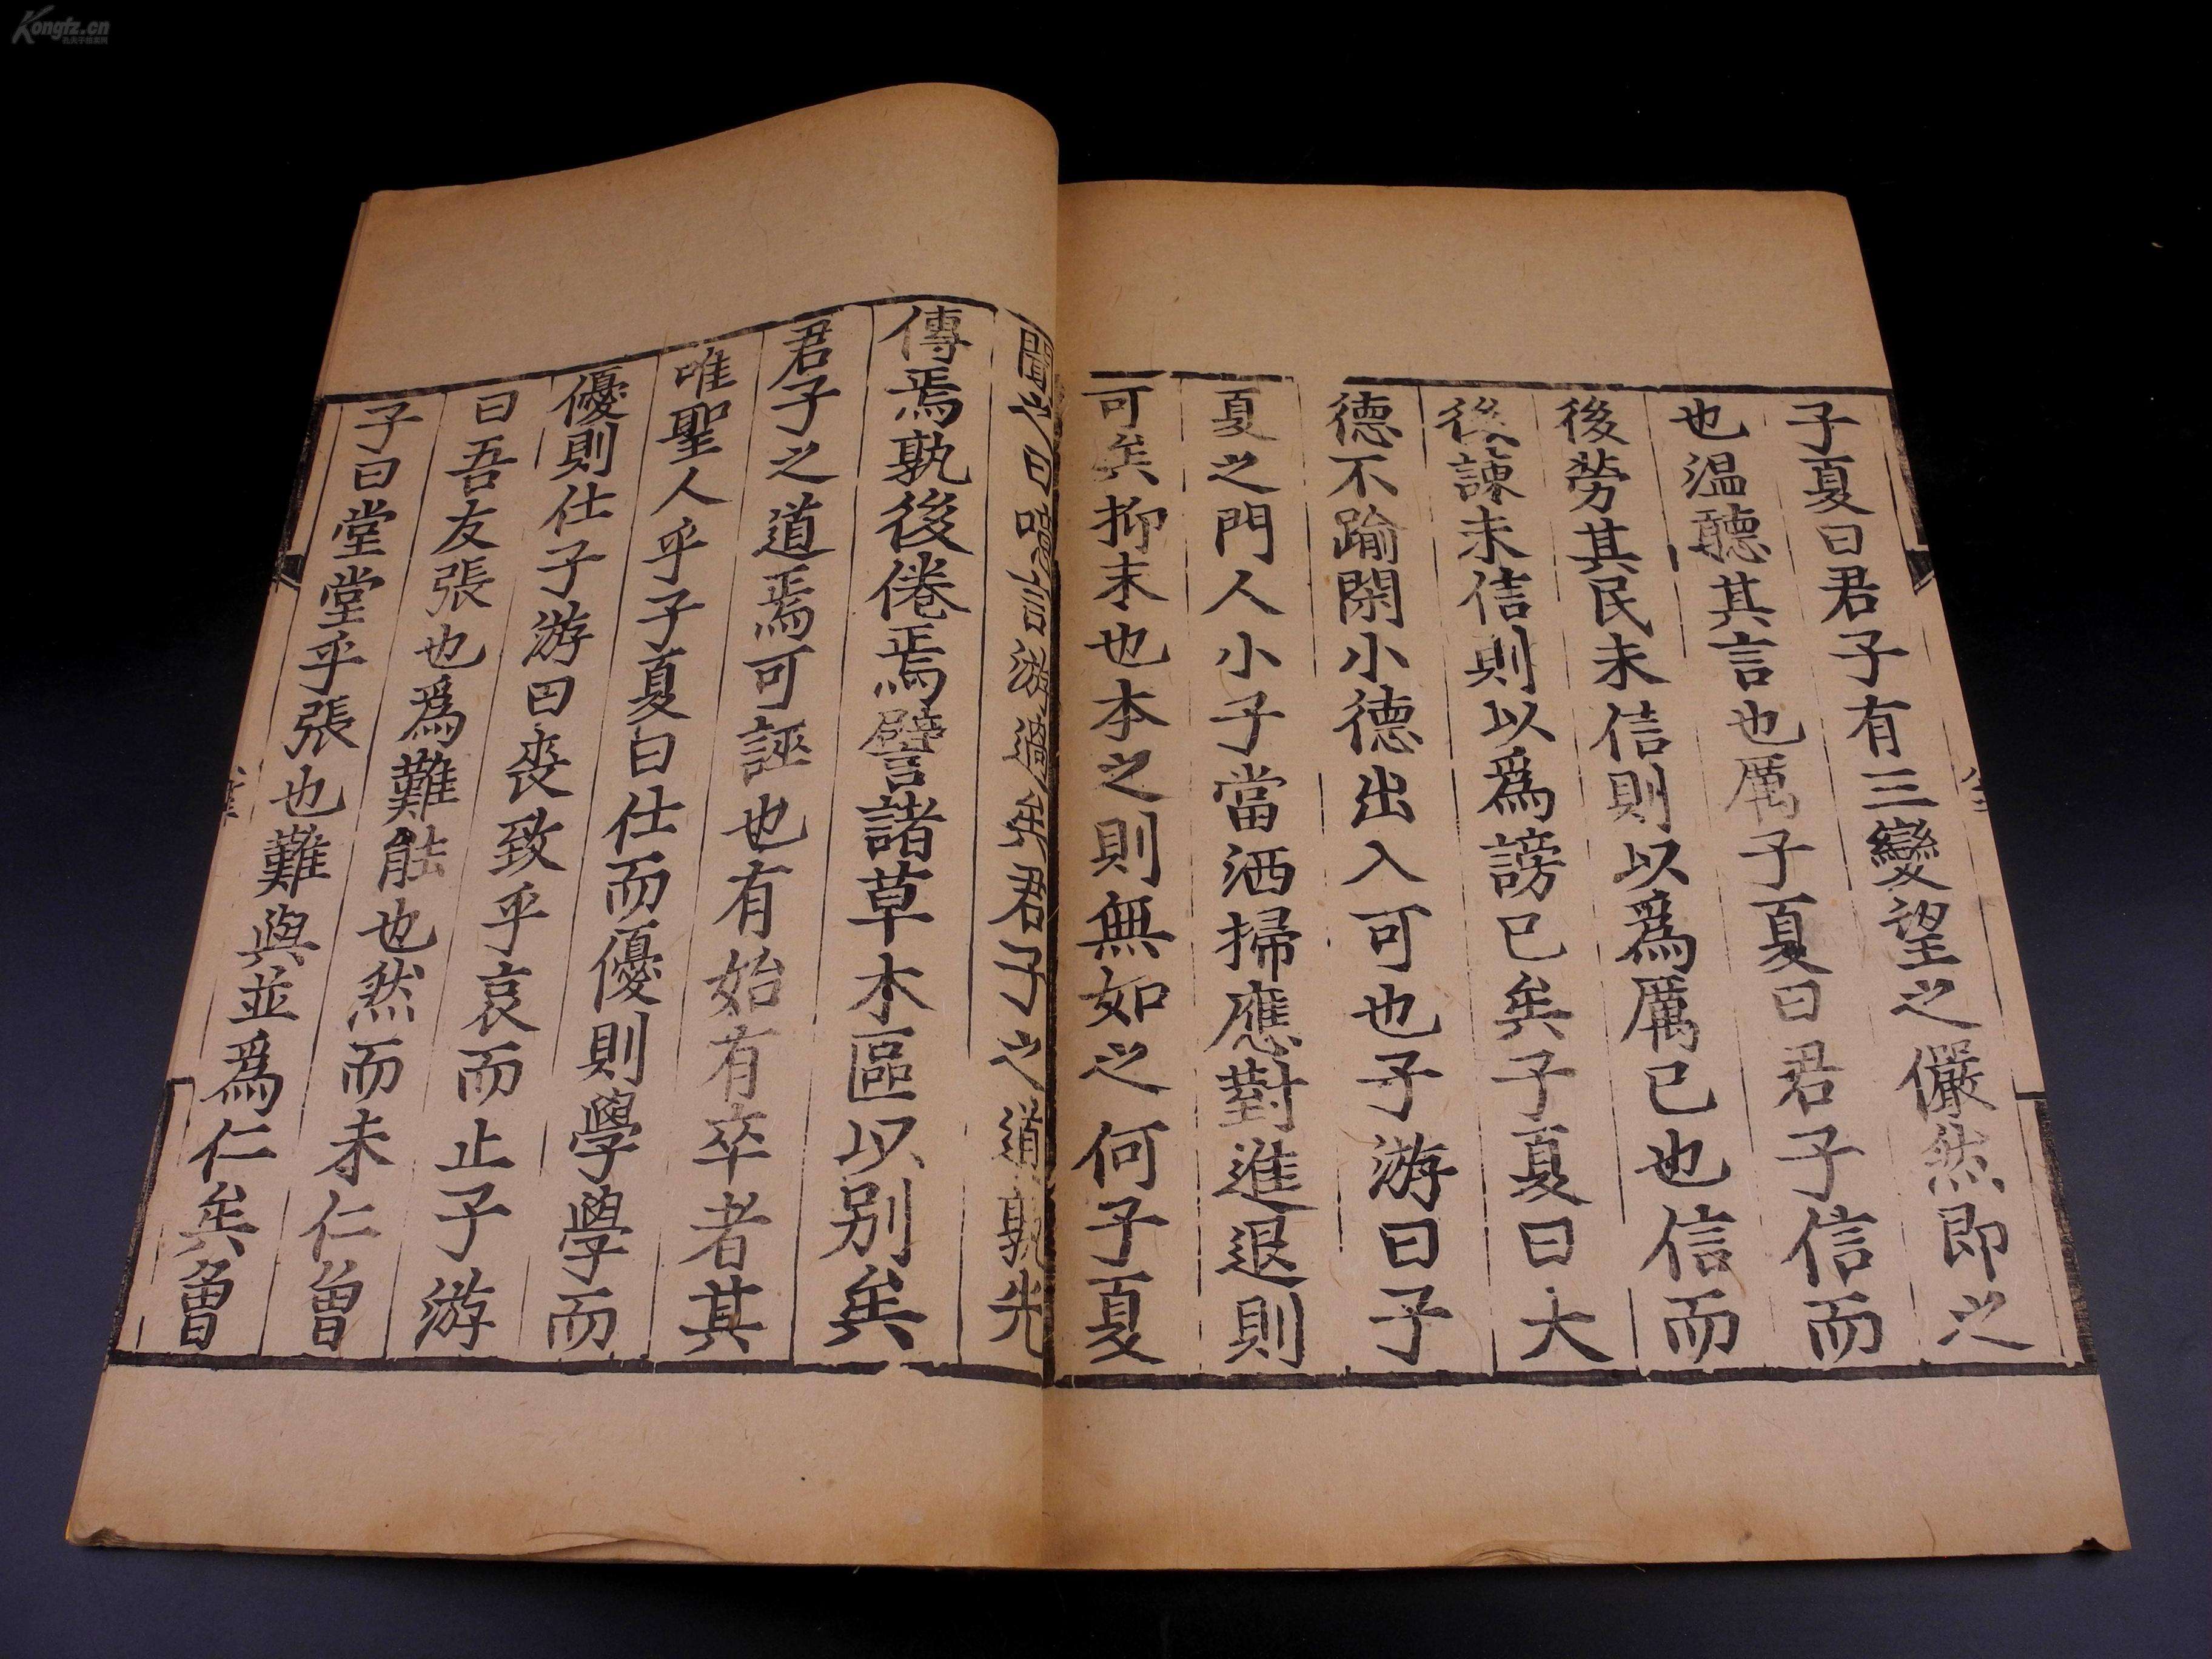 Kongfz.cn
孔夫子旧书网
子夏曰君子有三變望之儼然即之
也温聽其言也厲子夏曰君子信而
後勞其民未信則以爲厲己也信而
後諫未信則以爲謗已矣子夏曰大
德不踰閑小德出入可也子游曰子
夏之門人小子當洒掃應對進退則
可矣抑末也本之則無如之何子夏
聞之曰噫言游過矣君子之道孰先
傳焉孰後倦焉譬諸草木區以别矣
君子之道焉可誣也有始有卒者其
唯聖人乎子夏曰仕而優則學學而
優則仕子游曰丧致乎哀而止子游
曰吾友張也爲難能也然而未仁曾
子曰堂堂乎張也難與並爲仁矣曾